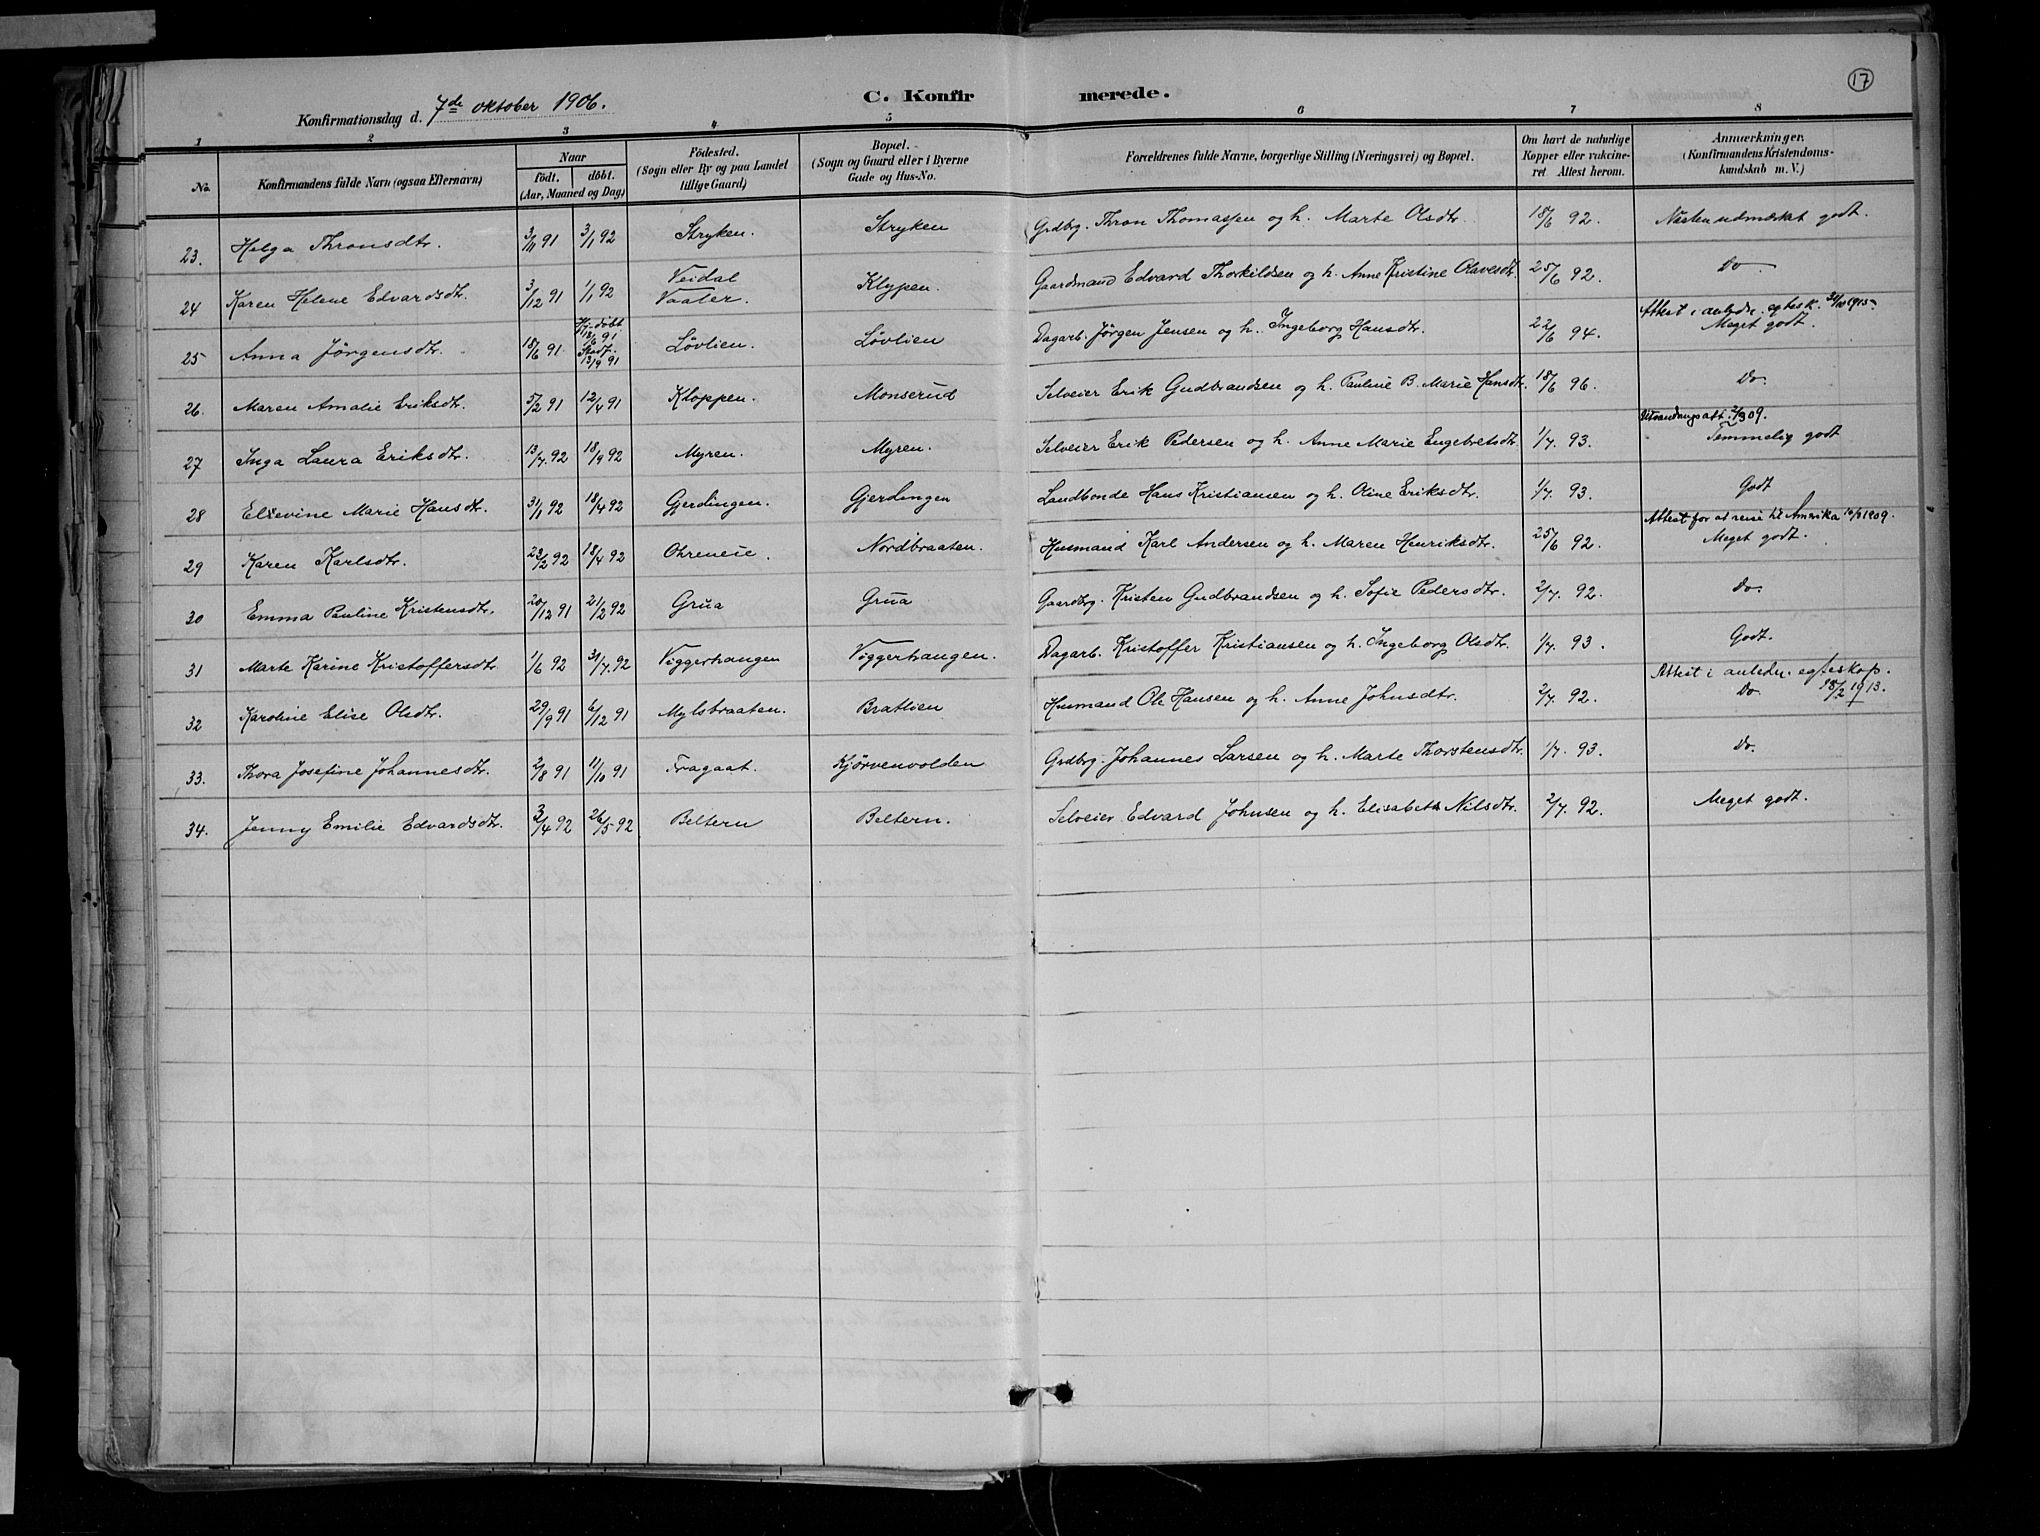 17
C. Konfirmerede.
Konfirmationsdag d. 7de oktober 1906.
1 2 3 4 5 6 7 8
No. Konfirmandens fulde Navn (ogsaa Efternavn) Naar födt. döbt. (Aar, Maaned og Dag) Födested. (Sogn eller By og paa Landet tillige Gaard) Bopæl. (Sogn og Gaard eller i Byerne Gade og Hus-No. Forældrenes fulde Navne, borgerlige Stilling (Næringsvei) og Bopæl. Om havt de naturlige Kopper eller vakcineret Attest herom. Anmærkninger. (Konfirmandens Kristendomskundskab m. V.)
23. Helga Thronsdtr. 3/11 91 3/1 92 Stryken. Stryken Grdbrg. Thron Thomassen og h. Marte Olsdtr. 18/6 92. Næsten udmærket godt.
24 Karen Helene Edvardsdtr. 3/12 91 1/1 92 Veidal Vaaler. Klypen. Gaardmand Edvard Thorkildsen og h. Anne Kristine Olavesdtr. 25/6 92. Do
25 Anna Jørgensdtr. 18/6 91 Hj.døbt 18/6 91 Stadf. 13/9 91 Løvlien. Løvlien Dagarb. Jørgen Jensen og h. Ingeborg Hansdtr. 22/6 94. Attest i anledn. egtesk. 30/10 1915 Meget godt.
26. Maren Amalie Eriksdtr. 5/2 91 12/4 91 Kloppen. Monserud Selveier Erik Gudbrandsen og h. Pauline B. Marie Hansdtr. 18/6 96. Do.
27 Inga Laura Eriksdtr. 13/7 92 18/9 92 Myren. Myren. Selveier Erik Pedersen og h. Anne Marie Engebretsdtr. 1/7 93. Utvandringsatt. 2/3 09. Temmelig godt
28 Elievine Marie Hansdtr. 31/1 92 18/4 92 Gjerdingen. Gjerdingen Landbonde Hans Kristiansen og h. Oline Eriksdtr. 1/7 93. Godt
29 Karen Karlsdtr. 23/2 92 18/4 92 Ohreneie. Nordbraaten. Husmand Karl Andersen og h. Maren Henriksdtr. 25/6 92. Attest for at reise til Amerika 1909. Meget godt.
30 Emma Pauline Kristensdtr. 20/12 91 21/2 92 Grua Grua Gaardbrg. Kristen Gudbrandsen og h. Sofie Pedersdtr. 2/7 92. Do.
31 Marte Karine Kristoffersdtr 1/6 92 31/7 92 Viggerhaugen Viggerhaugen. Dagarb. Kristoffer Kristiansen og h. Ingeborg Olsdtr. 1/7 93. Godt.
32 Karoline Elise Olsdtr. 29/9 91 6/12 91 Mylsbraaten. Bratlien Husmand Ole Hansen og h. Anne Johnsdtr. 2/7 92. Attest i anledn. egteskap. 18/2 1913. Do
33. Thora Josefine Johannesdtr. 2/8 91 11/10 91 Fragaat. Kjørvenvolden Grdbrg. Johannes Larsen og h. Marte Thorstensdtr. 1/7 93. Do.
34. Jenny Emilie Edvardsdtr. 3/4 92 26/5 92 Beltern Beltern. Selveier Edvard Johnsen og h. Elisabeth Nilsdtr. 2/7 92. Meget godt.